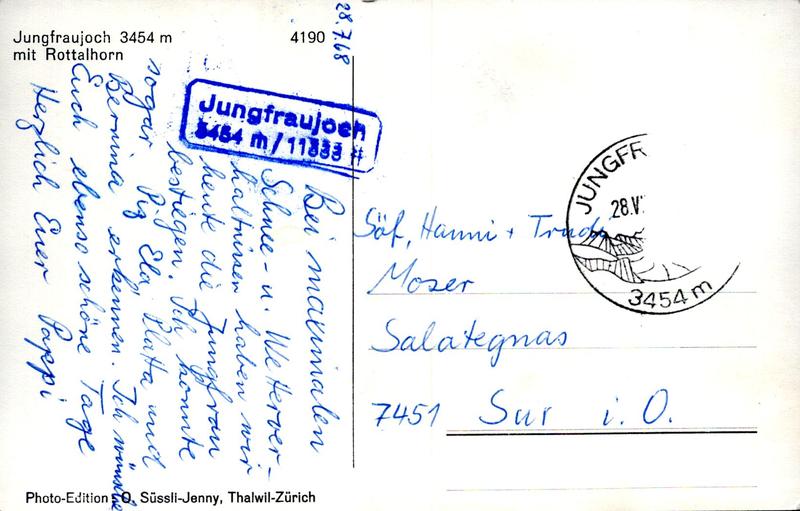 Jungfraujoch 3454 m
mit Rottalhorn
4190
28.7.68
Jungfraujoch
3454 m / 11333 ft
Bei maximalen
Schnee- u. Wetterver-
hältnissen haben wir
heute die Jungfrau
bestiegen. Ich konnte
sogar Piz Ela Platta und
Bernina erkennen. Ich wünsche
Euch ebenso schöne Tage
Herzlich Euer Pappi
Photo-Edition O. Süssli-Jenny, Thalwil-Zürich
JUNGFR
28.V
3454 m
Söf, Hanni + Trudi
Moser
Salategnas
7451 Sur i. O.